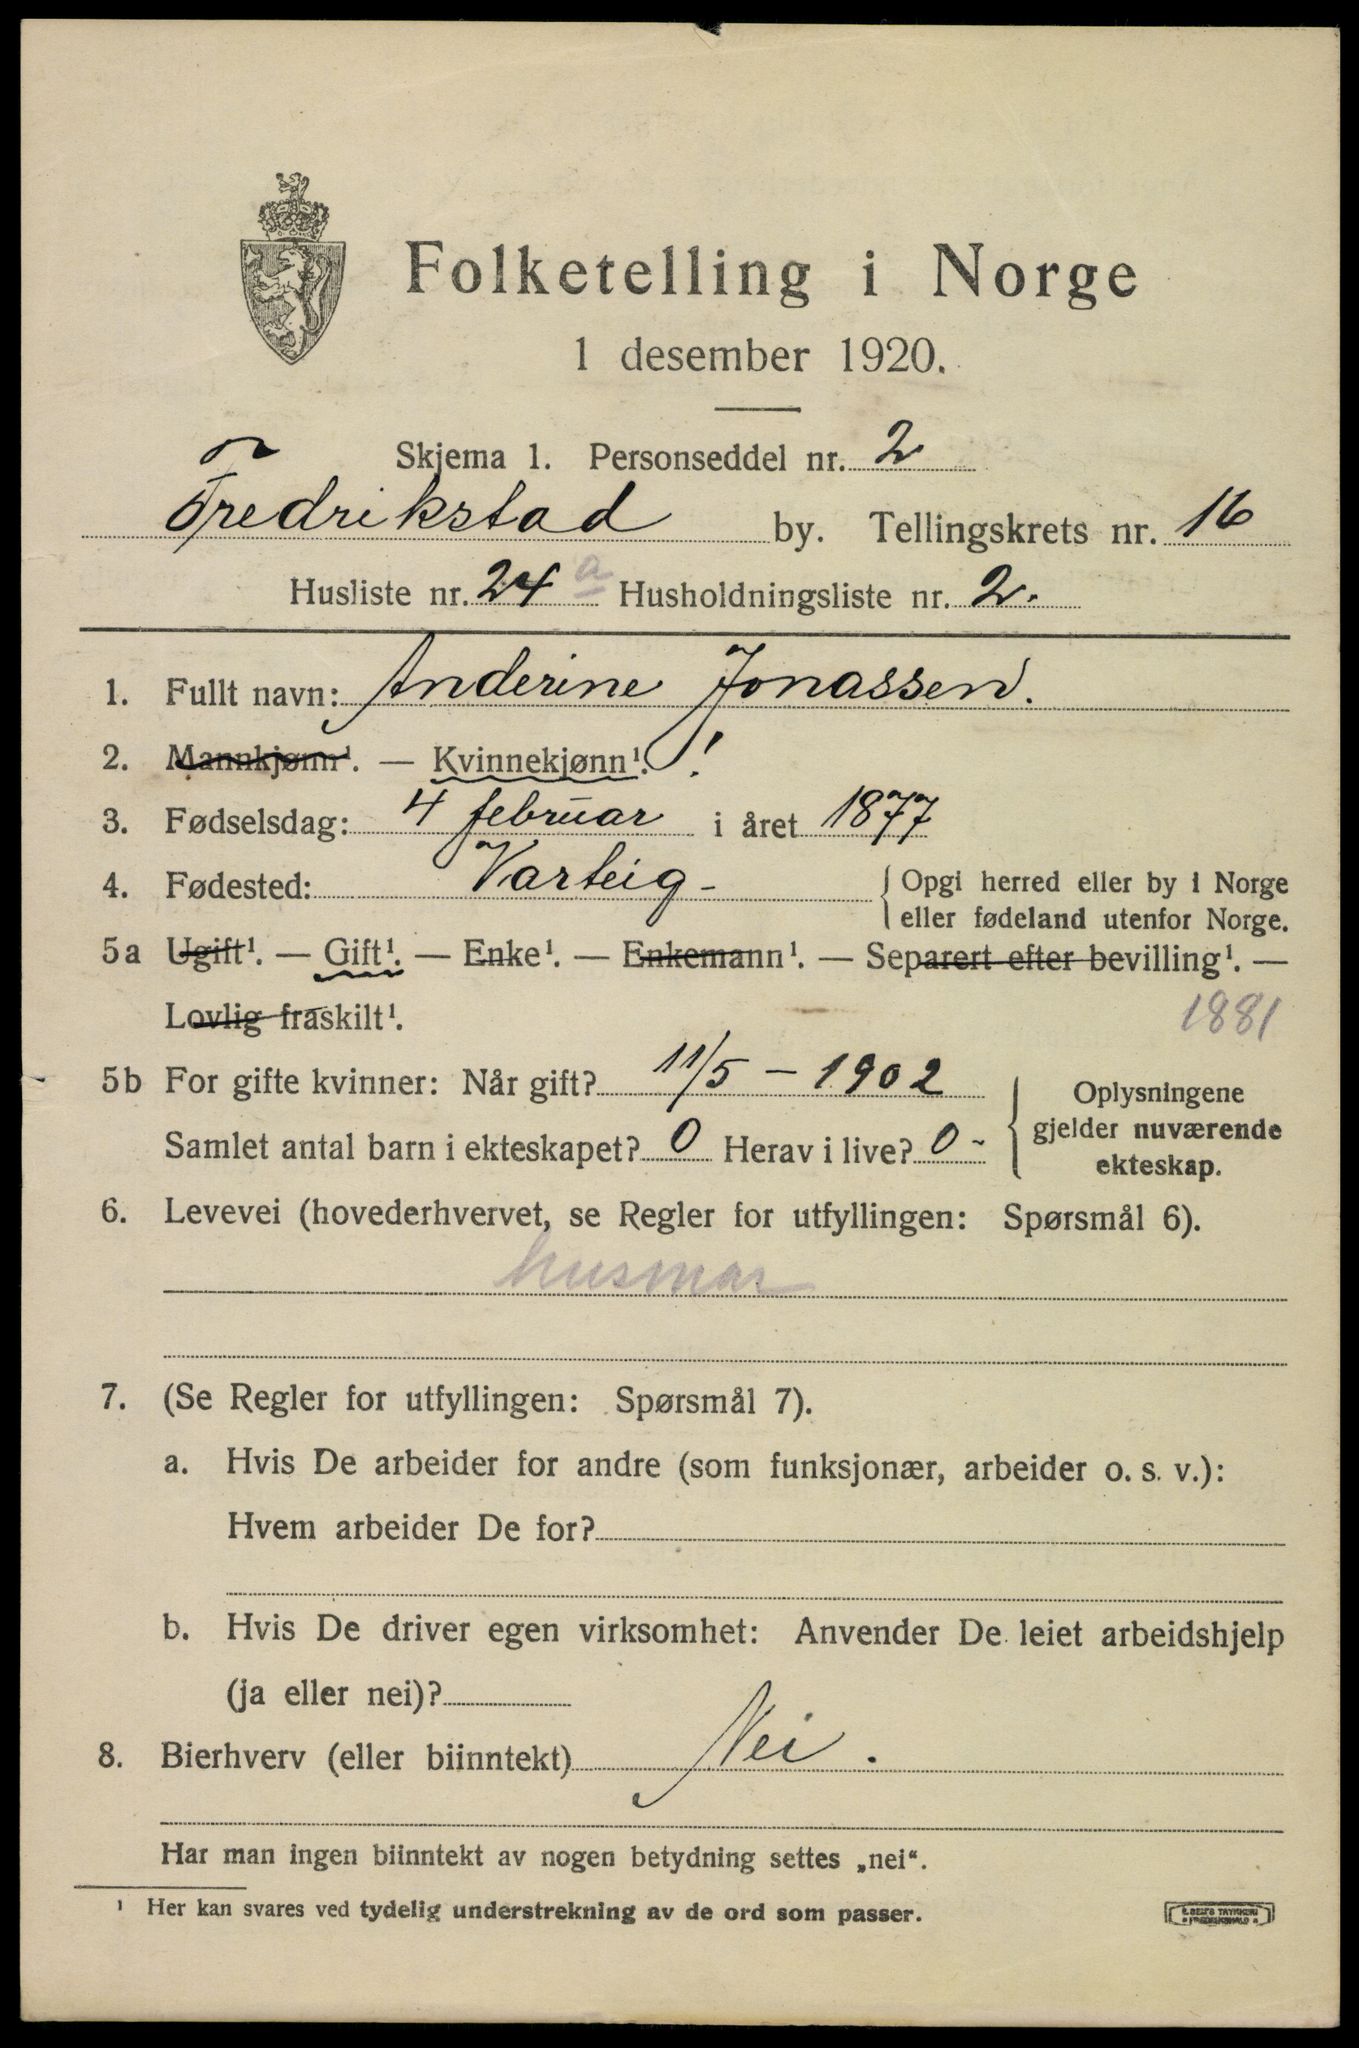 Folketelling i Norge
1 desember 1920.
Skjema 1. Personseddel nr. 2
Fredrikstad by. Tellingskrets nr. 16
Husliste nr. 24 a Husholdningsliste nr. 2.
1. Fullt navn: Anderine Jonassen.
2. Mannkjønn¹. — Kvinnekjønn¹. !
3. Fødselsdag: 4 februar i året 1877
4. Fødested: Varteig - { Opgi herred eller by i Norge
eller fødeland utenfor Norge.
5a Ugift¹. — Gift¹. — Enke¹. — Enkemann¹. — Separert efter bevilling¹. —
Lovlig fraskilt¹. 1881
5b For gifte kvinner: Når gift? 11/5 – 1902
Samlet antal barn i ekteskapet? 0 Herav i live? 0 -
{ Oplysningene
gjelder nuværende
ekteskap.
6. Levevei (hovederhvervet, se Regler for utfyllingen: Spørsmål 6).
husmor
7. (Se Regler for utfyllingen: Spørsmål 7).
a. Hvis De arbeider for andre (som funksjonær, arbeider o. s. v.):
Hvem arbeider De for?
b. Hvis De driver egen virksomhet: Anvender De leiet arbeidshjelp
(ja eller nei)?
8. Bierhverv (eller biinntekt) Nei.
Har man ingen biinntekt av nogen betydning settes „nei“.
¹ Her kan svares ved tydelig understrekning av de ord som passer.